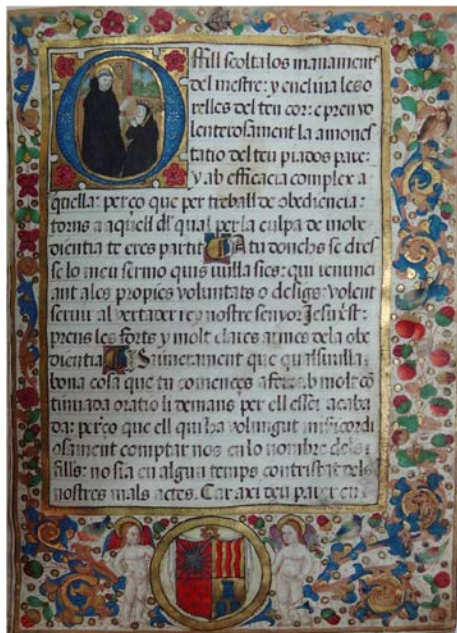 O ffill scolta los manaments
del mestre: y enclina les o
relles del teu cor: e pren vo
lenterosament la amones
tatio del teu piados pare:
y ab efficacia complex a
quella: perço que per treball de obediencia:
torns a aquell dl qual per la culpa de inobe
dientia te eres partit A tu donchs se dres
se lo meu sermo quis vulla sies: qui renunci
ant a les propies voluntats o desigs: volent
seruir al vertader rey nostre senyor Jesucrist:
prens les forts y molt clares armes de la obe
dientia Primerament que qualsuulla
bona cosa que tu comences a fer: ab molt cō
tinuada oratio li demans per ell esser acaba
da: perço que ell qui ha volungut misericordi
osament comptar nos en lo nombre dels
fills: no sia en algun temps contristat dels
nostres mals actes. Car axi deu pare en